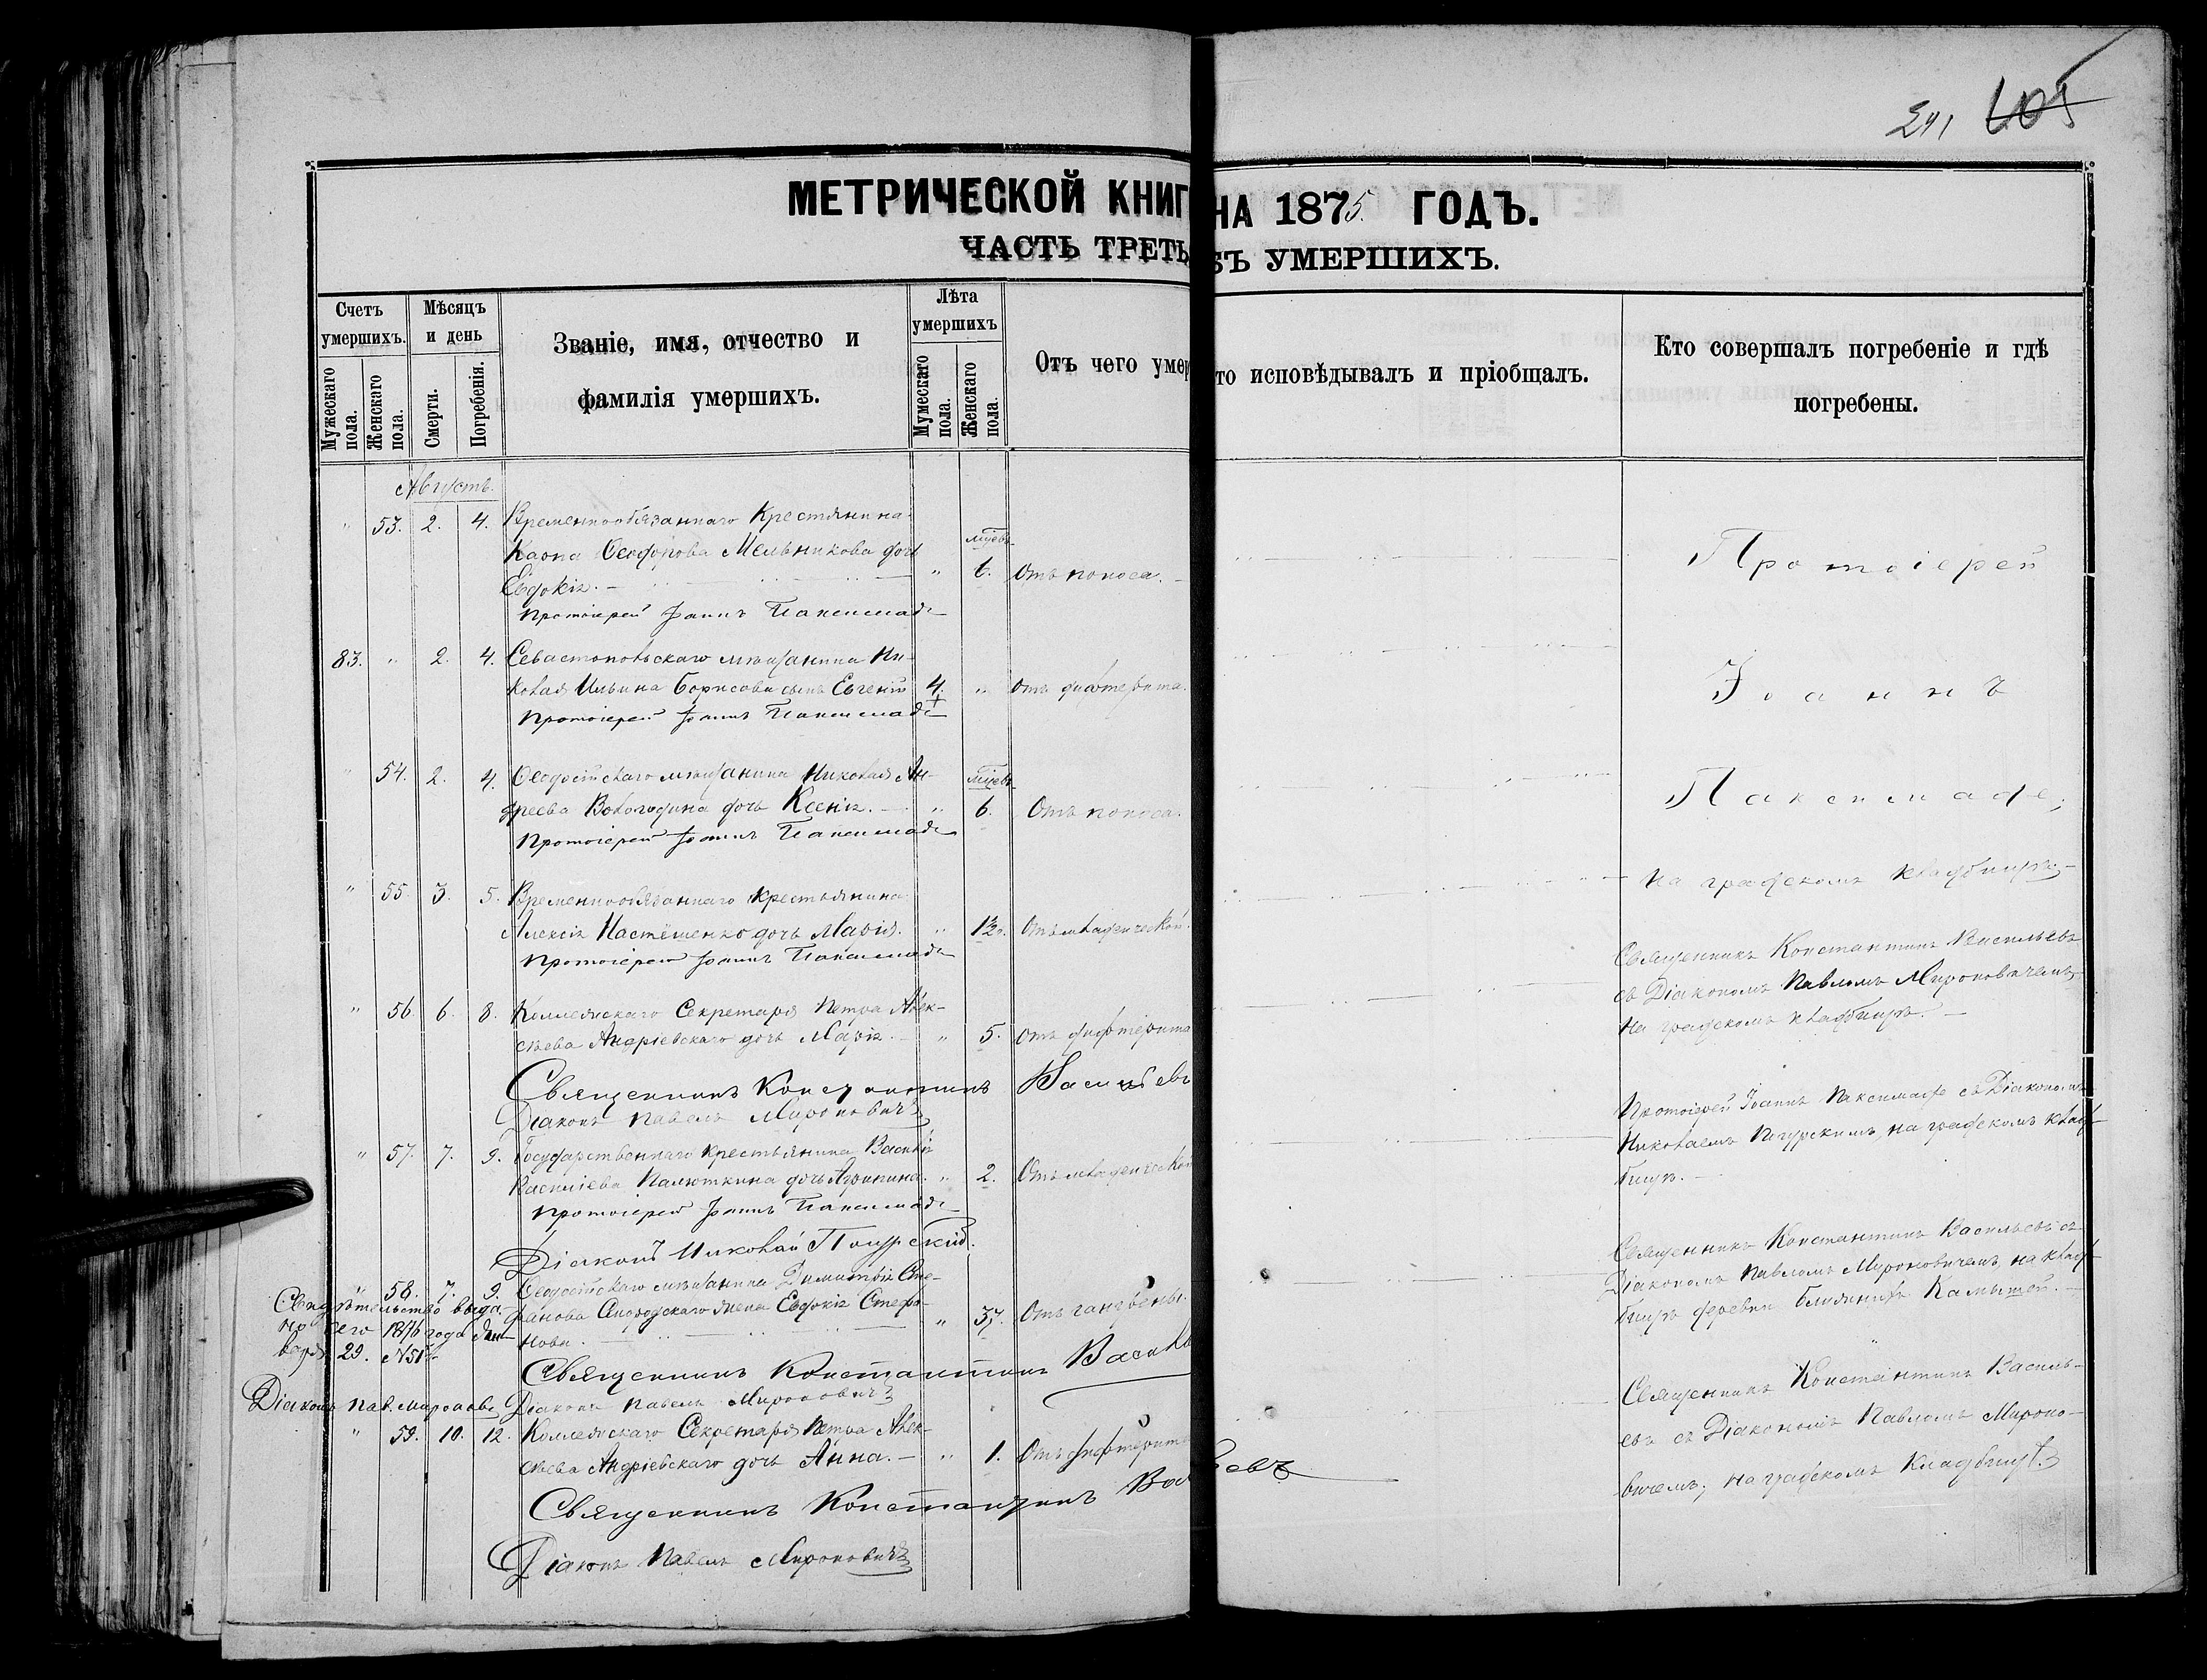 МЕТРИЧЕСКОЙ КНИГ НА 1875. ГОДЪ.
ЧАСТЬ ТРЕТЬ УМЕРШИХЪ.
Счетъ умершихъ.
Мужескаго пола.
Женскаго пола.
Мѣсяцъ и день
Смерти.
Погребенія.
Званіе, имя, отчество и
фамилія умершихъ.
Лѣта умершихъ
Мужескаго пола.
Женскаго пола.
Отъ чего умер
то исповѣдывалъ и пріобщалъ.
Кто совершалъ погребеніе и гдѣ
погребены.
Августъ.
" 53. 2. 4. Временнообязаннаго Крестянина
Мельникова дочь
Евдокія. " 6. Отъ поноса.
Протоіерей Іоаннъ Паксимаде
83. " 2. 4. Севастопольскаго мѣщанина Ни-
колая Ильина Борисова сынъ Евгеній 4. " Отъ дифтерита.
Протоіерей Іоаннъ Паксимаде
" 54. 2. 4. Ѳеодосійскаго мѣщанина Николая Ан-
дреева Вологодина дочь Ксенія. " 6. Отъ поноса.
Протоіерей Іоаннъ Паксимаде
" 55. 3. 5. Временнообязаннаго крестьянина
Алексія дочь Марія. " Отъ младенческой.
Протоіерей Іоаннъ Паксимаде
" 56. 6. 8. Коллежскаго Секретаря Петра Алек-
сѣева Андріевскаго дочь Марія. " 5. Отъ дифтерита
Священникъ Константинъ Васильевъ
Діаконъ Павелъ Мироновичъ
" 57. 7. 9. Государственнаго крестьянина Василія
Василіева дочь Агрипина. " 2. Отъ младенческой
Протоіерей Іоаннъ Паксимаде
Діаконъ Николай
" 58. 7. 9. Ѳеодосійскаго мѣщанина Димитрія Сте-
фанова жена Евдокія Стефа-
нова. " 37. Отъ гангрены.
Священникъ Константинъ Василь
Діаконъ Павелъ Мироновичъ
Свидѣтельство выда-
но сего 1876 года Ян-
варя 29.
Діаконъ Пав. Мироновъ
" 59. 10. 12. Коллежскаго Секретаря Петра Алек-
сѣева Андріевскаго дочь Анна. " 1. Отъ дифтерита
Священникъ Константинъ Вас ьевъ
Діаконъ Павелъ Мироновичъ
Протоіерей
Іоаннъ
Паксимаде;
на градскомъ кладбищѣ;
Священникъ Константинъ Васильевъ
съ Діакономъ Павломъ Мироновичемъ,
на градскомъ кладбищѣ.
Протоіерей Іоаннъ Паксимаде съ Діакономъ
Николаемъ на градскомъ клад-
бищѣ.
Священникъ Константинъ Васильевъ съ
Діакономъ Павломъ Мироновичемъ, на клад-
бищѣ деревни Камышей.
Священникъ Константинъ Василь-
евъ съ Діакономъ Павломъ Мироно-
вичемъ; на градскомъ кладбищѣ.